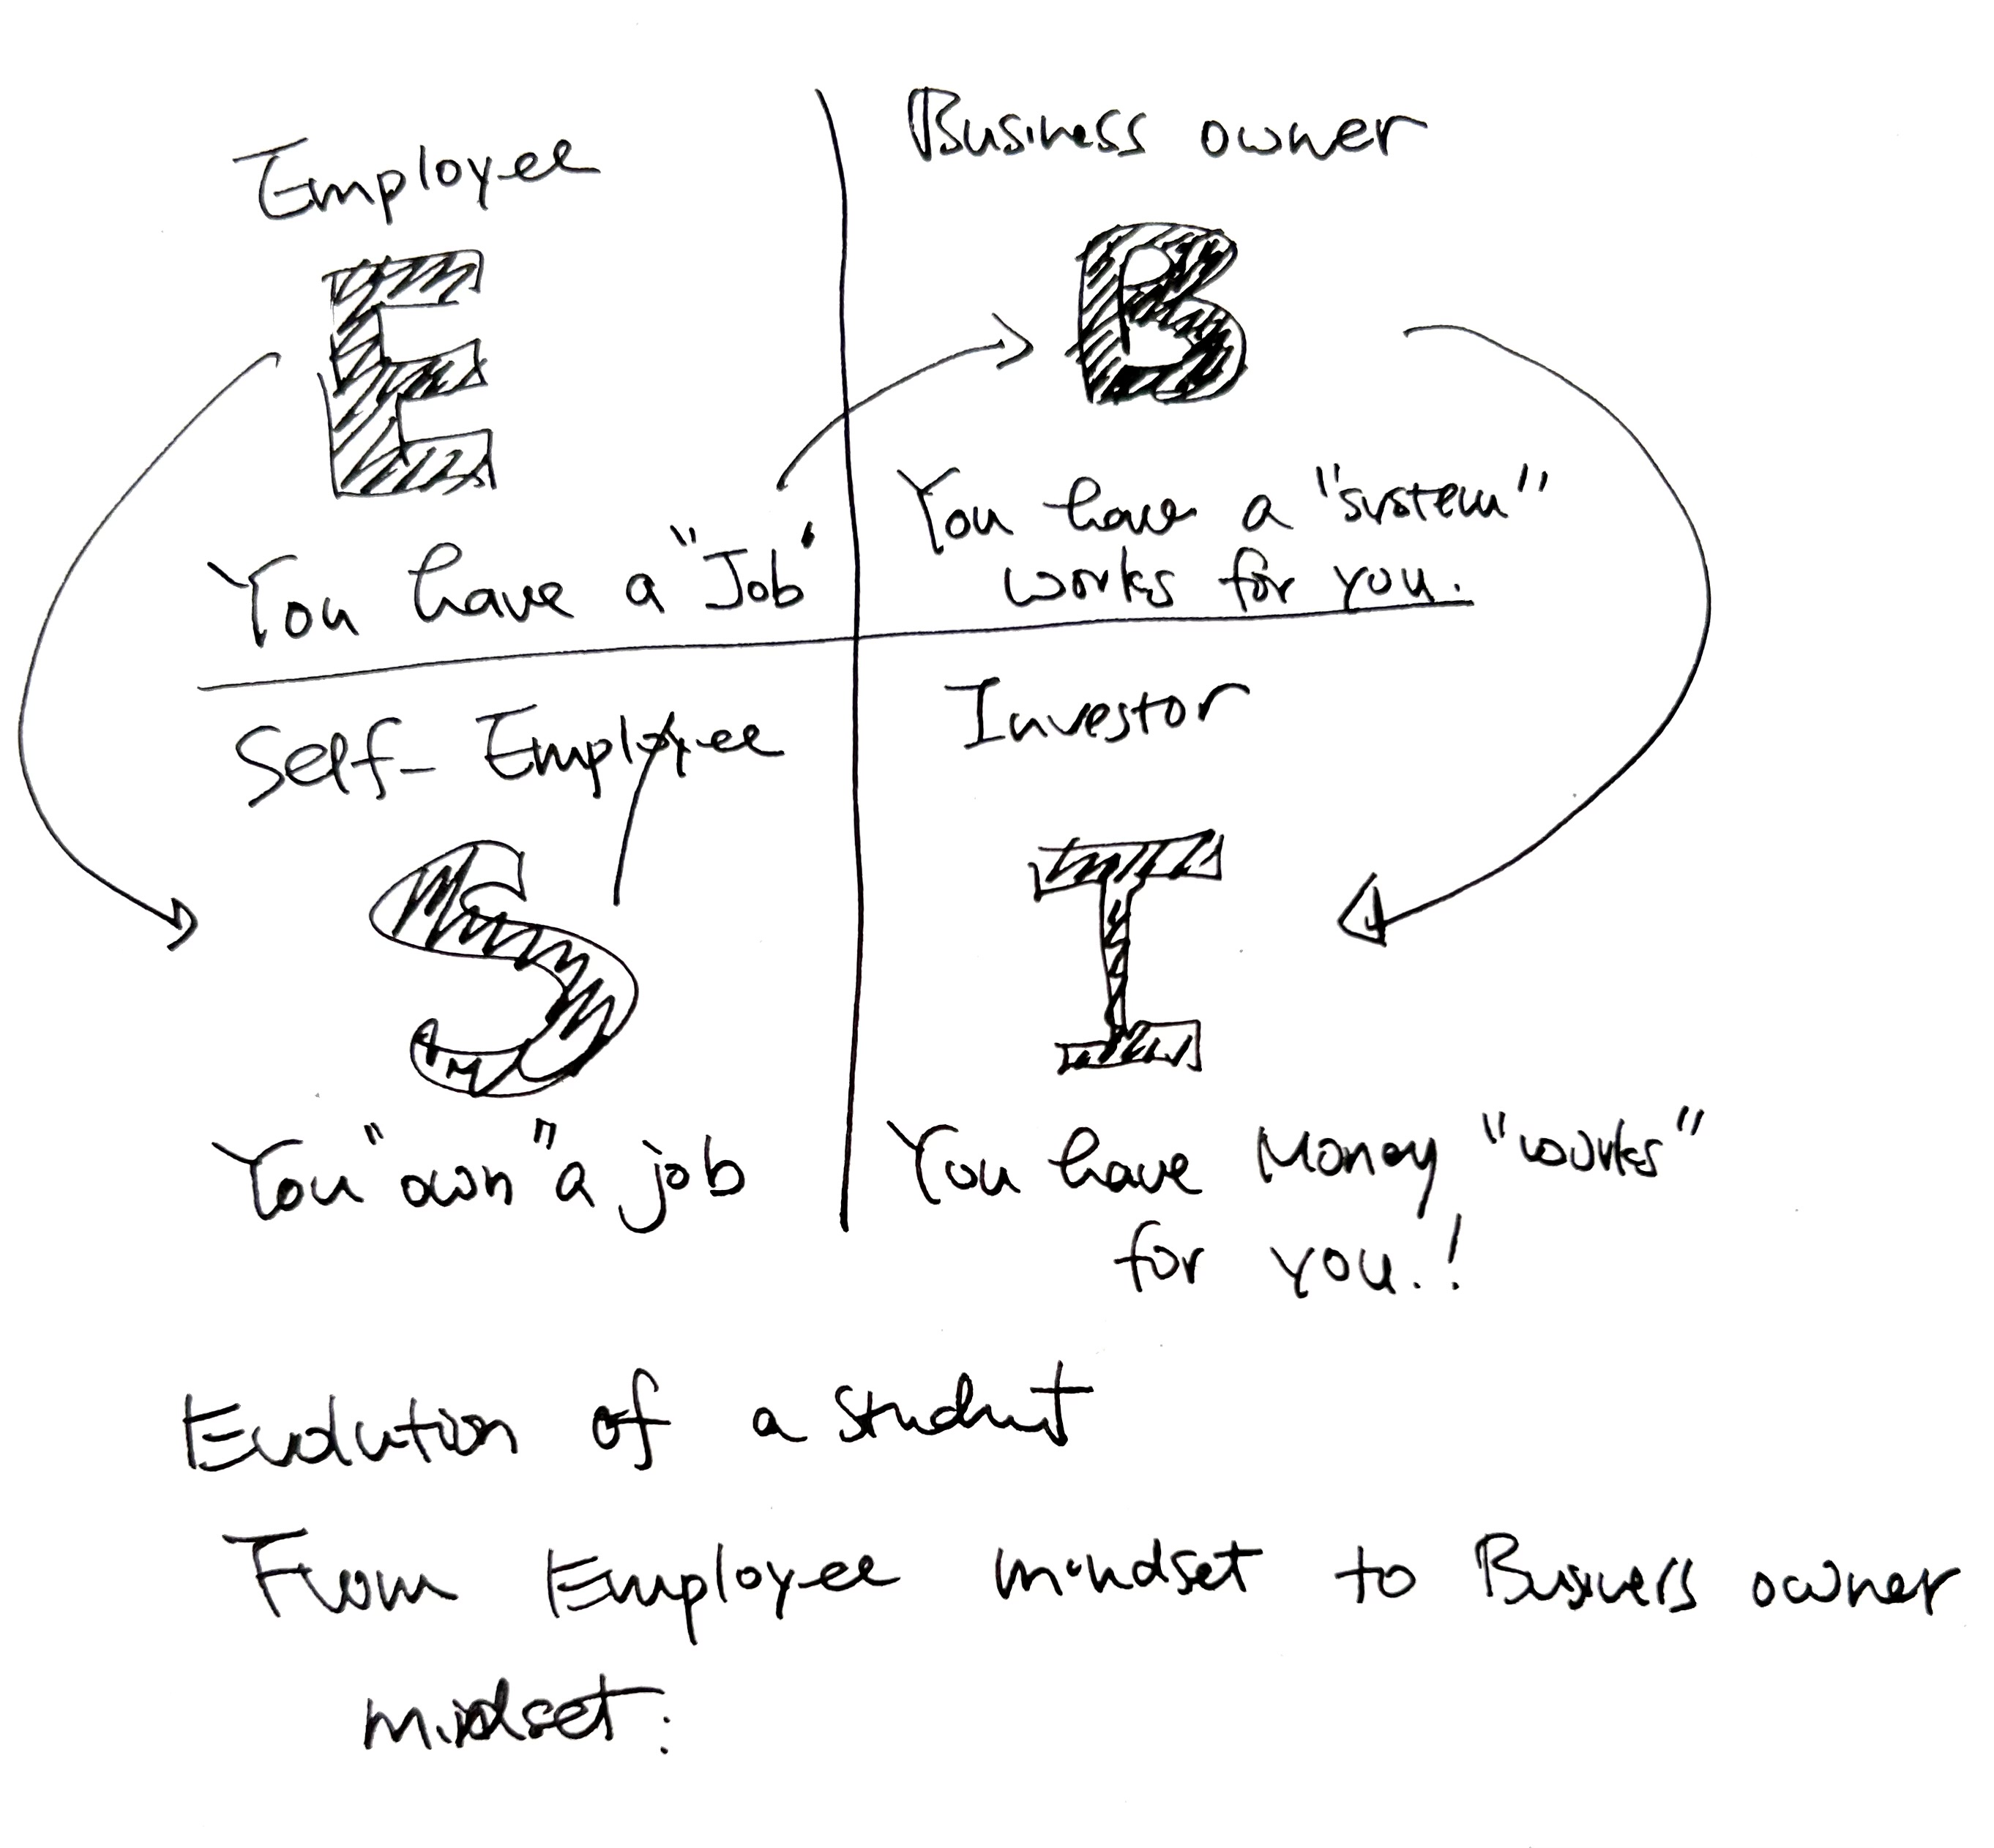 Employee
E
You have a "Job"
Business owner
B
You have a "system"
works for you.
Self-Employee
S
You "own" a job
Investor
I
You have Money "works"
for you.!
Evolution of a student
From Employee mindset to Business owner
mindset: